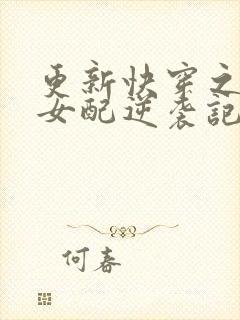 更新快穿之
女配逆袭記
何春